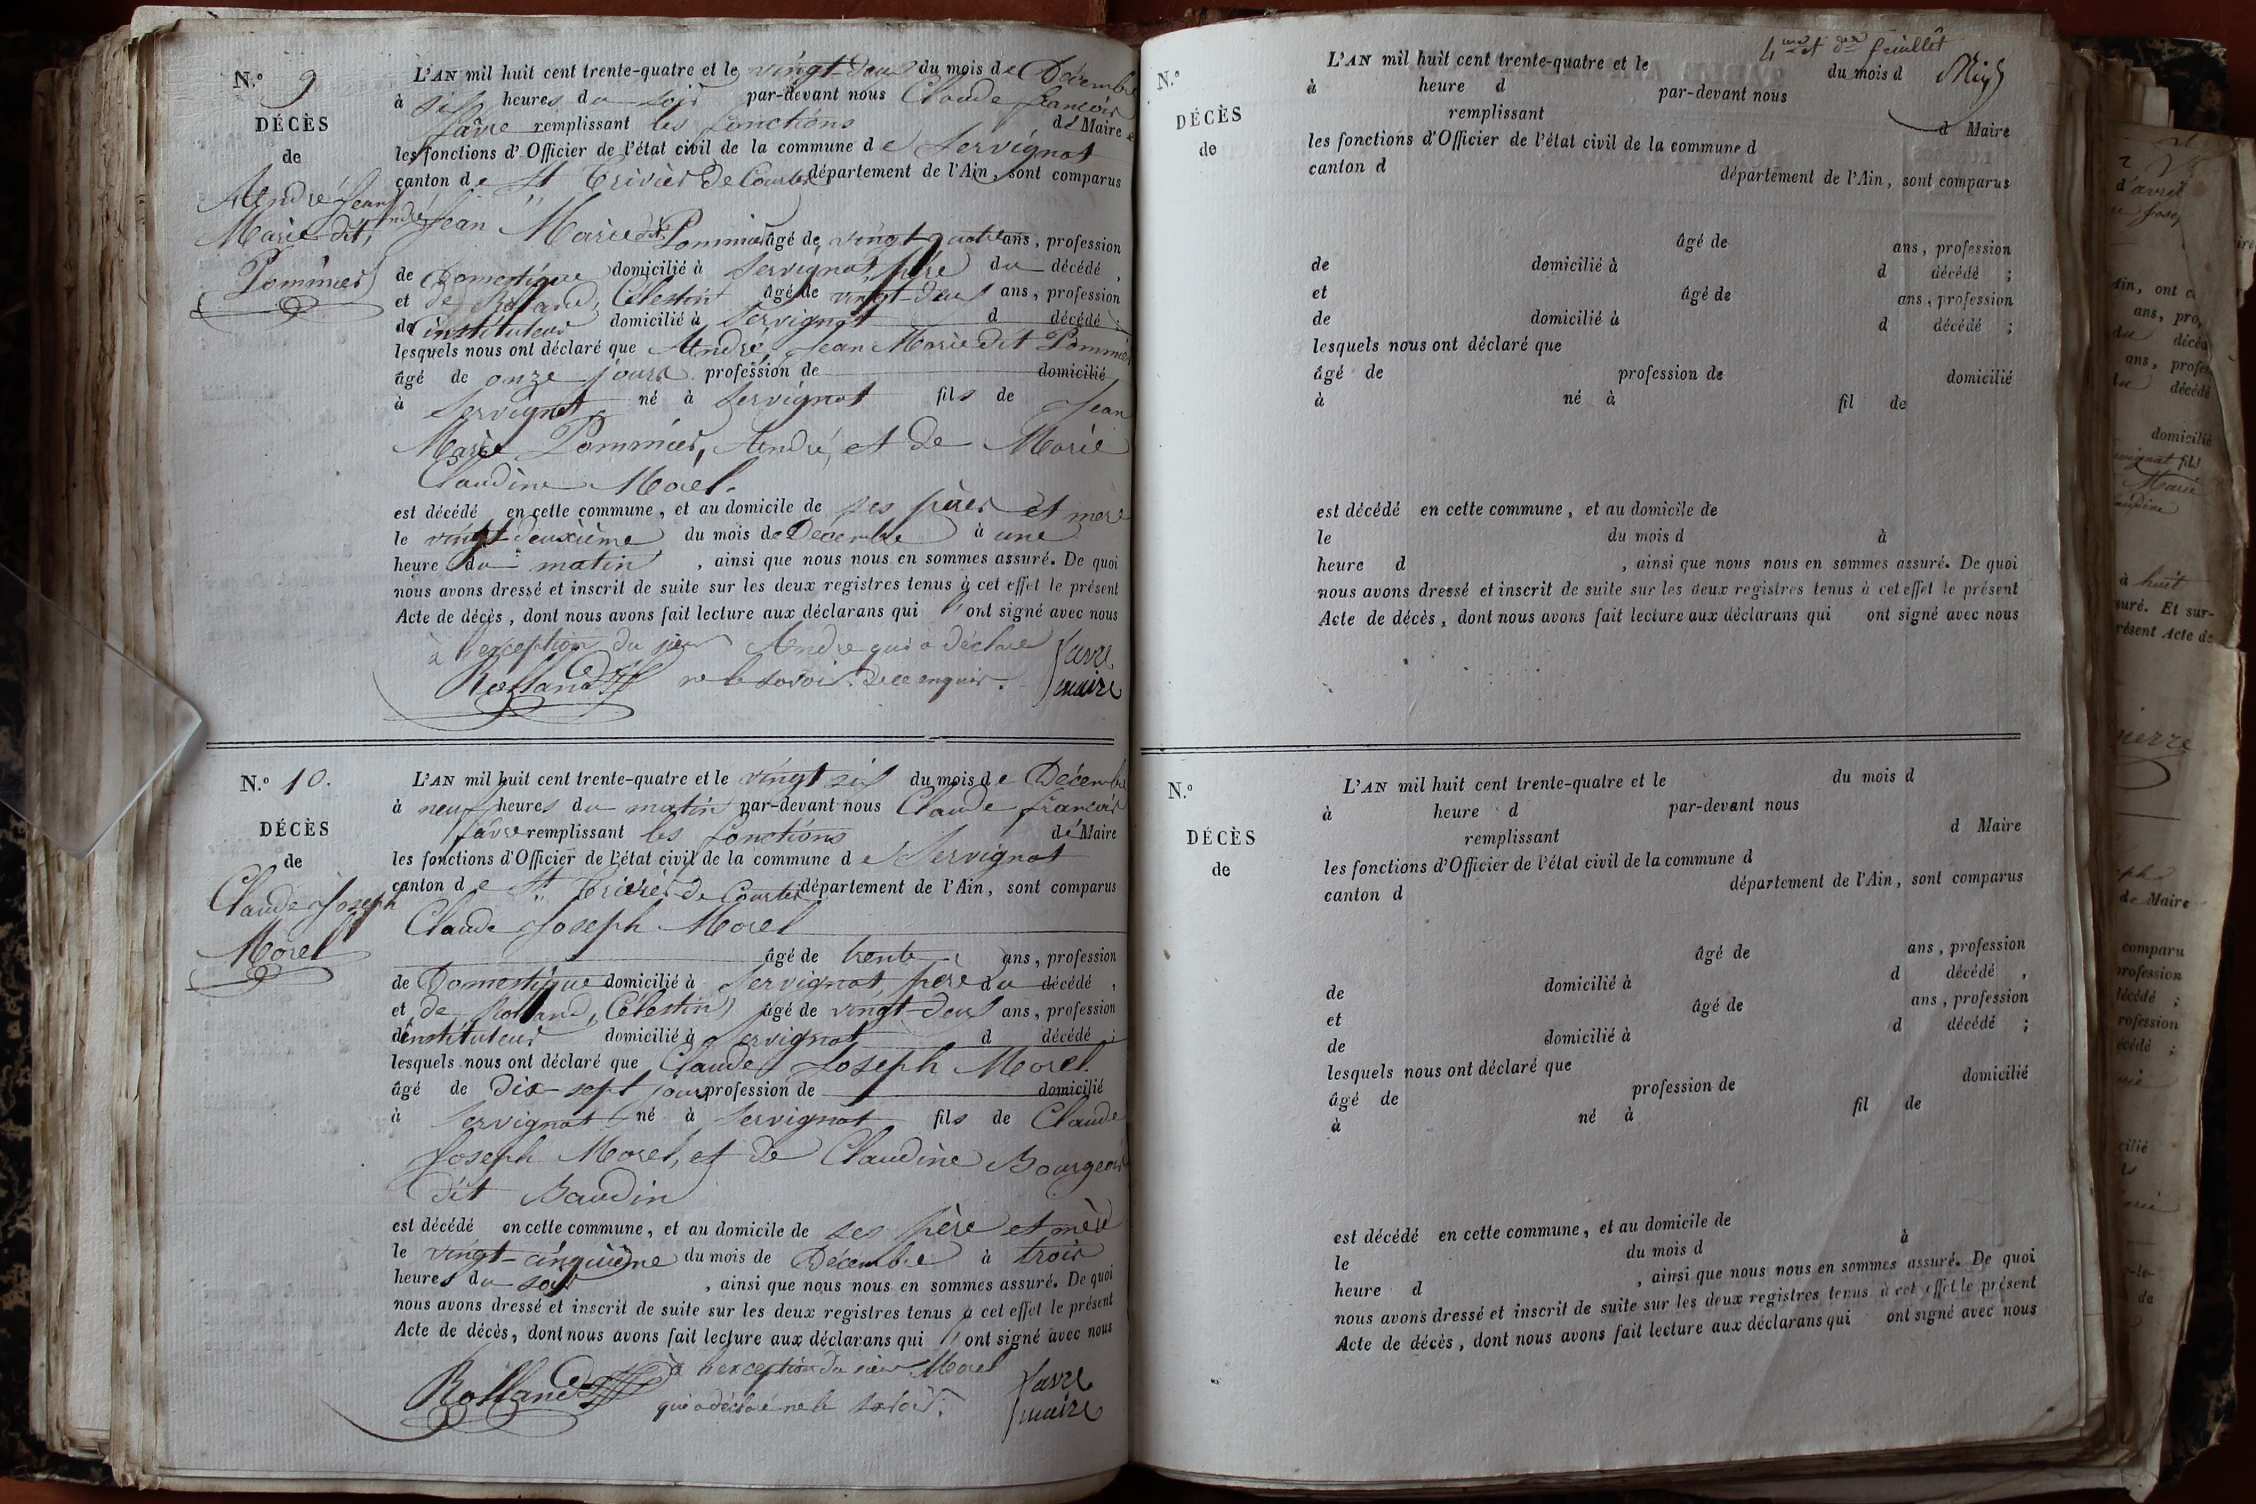 N.° 9
DÉCÈS
de
André Jean
Marie dit
Pommier
L'AN mil huit cent trente-quatre et le vingt-deux du mois de Décembre
à six heures du soir par-devant nous Claude françois
favre remplissant les fonctions de Maire
les fonctions d'Officier de l'état civil de la commune de Servignat
canton de St Trivier de Courtes département de l'Ain, sont comparus
André Jean Marie dit Pommier âgé de vingt quatre ans, profession
de Domestique domicilié à Servignat, père du décédé,
et de Rolland, Célestin âgé de vingt-deux ans, profession
d'instituteur domicilié à Servignat d décédé;
lesquels nous ont déclaré que André, Jean Marie dit Pommier
âgé de onze jours profession de domicilié
à Servignat né à Servignat fils de Jean
Marie Pommier, André, et de Marie
Claudine Morel.
est décédé en cette commune, et au domicile de ses pères et mere
le vingt-deuxième du mois de Décembre à une
heure du matin, ainsi que nous nous en sommes assuré. De quoi
nous avons dressé et inscrit de suite sur les deux registres tenus à cet effet le présent
Acte de décès, dont nous avons fait lecture aux déclarans qui ont signé avec nous
à l'exception du sieur André qui a déclaré
ne le savoir. de ce enquis.
Rolland
favre
maire
N.° 10.
DÉCÈS
de
Claude Joseph
Morel
L'AN mil huit cent trente-quatre et le vingt six du mois de Décembre
à neuf heures du matin par-devant nous Claude françois
favre remplissant les fonctions de Maire
les fonctions d'Officier de l'état civil de la commune de Servignat
canton de St Trivier de Courtes département de l'Ain, sont comparus
Claude Joseph Morel
âgé de trente ans, profession
de Domestique domicilié à Servignat, père du décédé,
et de Rolland, Célestin âgé de vingt-deux ans, profession
d'instituteur domicilié à Servignat d décédé;
lesquels nous ont déclaré que Claude Joseph Morel
âgé de dix-sept jours profession de domicilié
à Servignat né à Servignat fils de Claude
Joseph Morel, et de Claudine Bourgeois
dit Baudin
est décédé en cette commune, et au domicile de ses père et mère
le vingt-cinquième du mois de Décembre à trois
heures du soir, ainsi que nous nous en sommes assuré. De quoi
nous avons dressé et inscrit de suite sur les deux registres tenus à cet effet le présent
Acte de décès, dont nous avons fait lecture aux déclarans qui ont signé avec nous
à l'exception du sieur Morel
qui a déclaré ne le savoir.
Rolland
favre
maire
feuillet
N.°
DÉCÈS
de
L'AN mil huit cent trente-quatre et le du mois d
à heure d par-devant nous
remplissant d Maire
les fonctions d'Officier de l'état civil de la commune d
canton d département de l'Ain, sont comparus
âgé de ans, profession
de domicilié à d décédé;
et âgé de ans, profession
de domicilié à d décédé;
lesquels nous ont déclaré que
âgé de profession de domicilié
à né à fil de
est décédé en cette commune, et au domicile de
le du mois d à
heure d, ainsi que nous nous en sommes assuré. De quoi
nous avons dressé et inscrit de suite sur les deux registres tenus à cet effet le présent
Acte de décès, dont nous avons fait lecture aux déclarans qui ont signé avec nous
N.°
DÉCÈS
de
L'AN mil huit cent trente-quatre et le du mois d
à heure d par-devant nous
remplissant d Maire
les fonctions d'Officier de l'état civil de la commune d
canton d département de l'Ain, sont comparus
âgé de ans, profession
de domicilié à d décédé,
et âgé de ans, profession
de domicilié à d décédé;
lesquels nous ont déclaré que
âgé de profession de domicilié
à né à fil de
est décédé en cette commune, et au domicile de
le du mois d à
heure d, ainsi que nous nous en sommes assuré. De quoi
nous avons dressé et inscrit de suite sur les deux registres tenus à cet effet le présent
Acte de décès, dont nous avons fait lecture aux déclarans qui ont signé avec nous